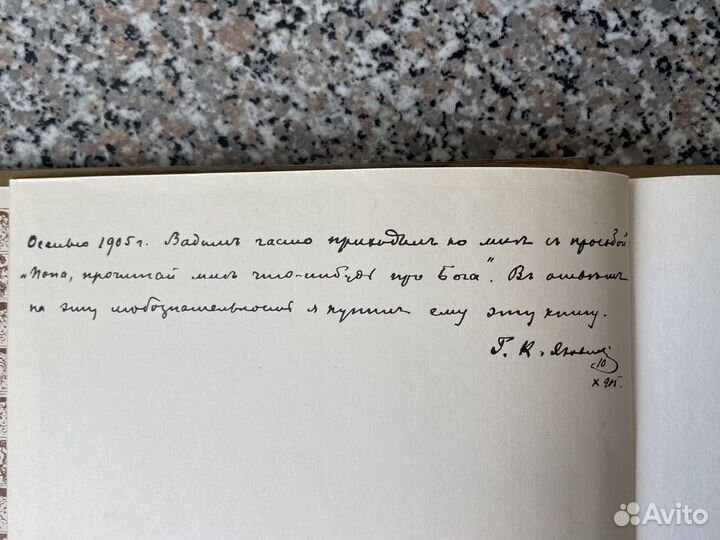 Осенью 1905 г. Вадимъ часто приходилъ ко мнѣ съ просьбой
„Папа, прочитай мнѣ что-нибудь про Бога". Въ отвѣтъ
на эту любознательность я купилъ ему эту книгу.
Г. К.
10
X 905.
Avito